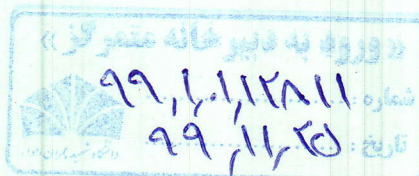 «ورود به دبیرخانه متمرکز»
شماره: ۹۹,۱۰۱,۱۲۸۱۱
تاریخ: ۹۹,۱۱,۲۵